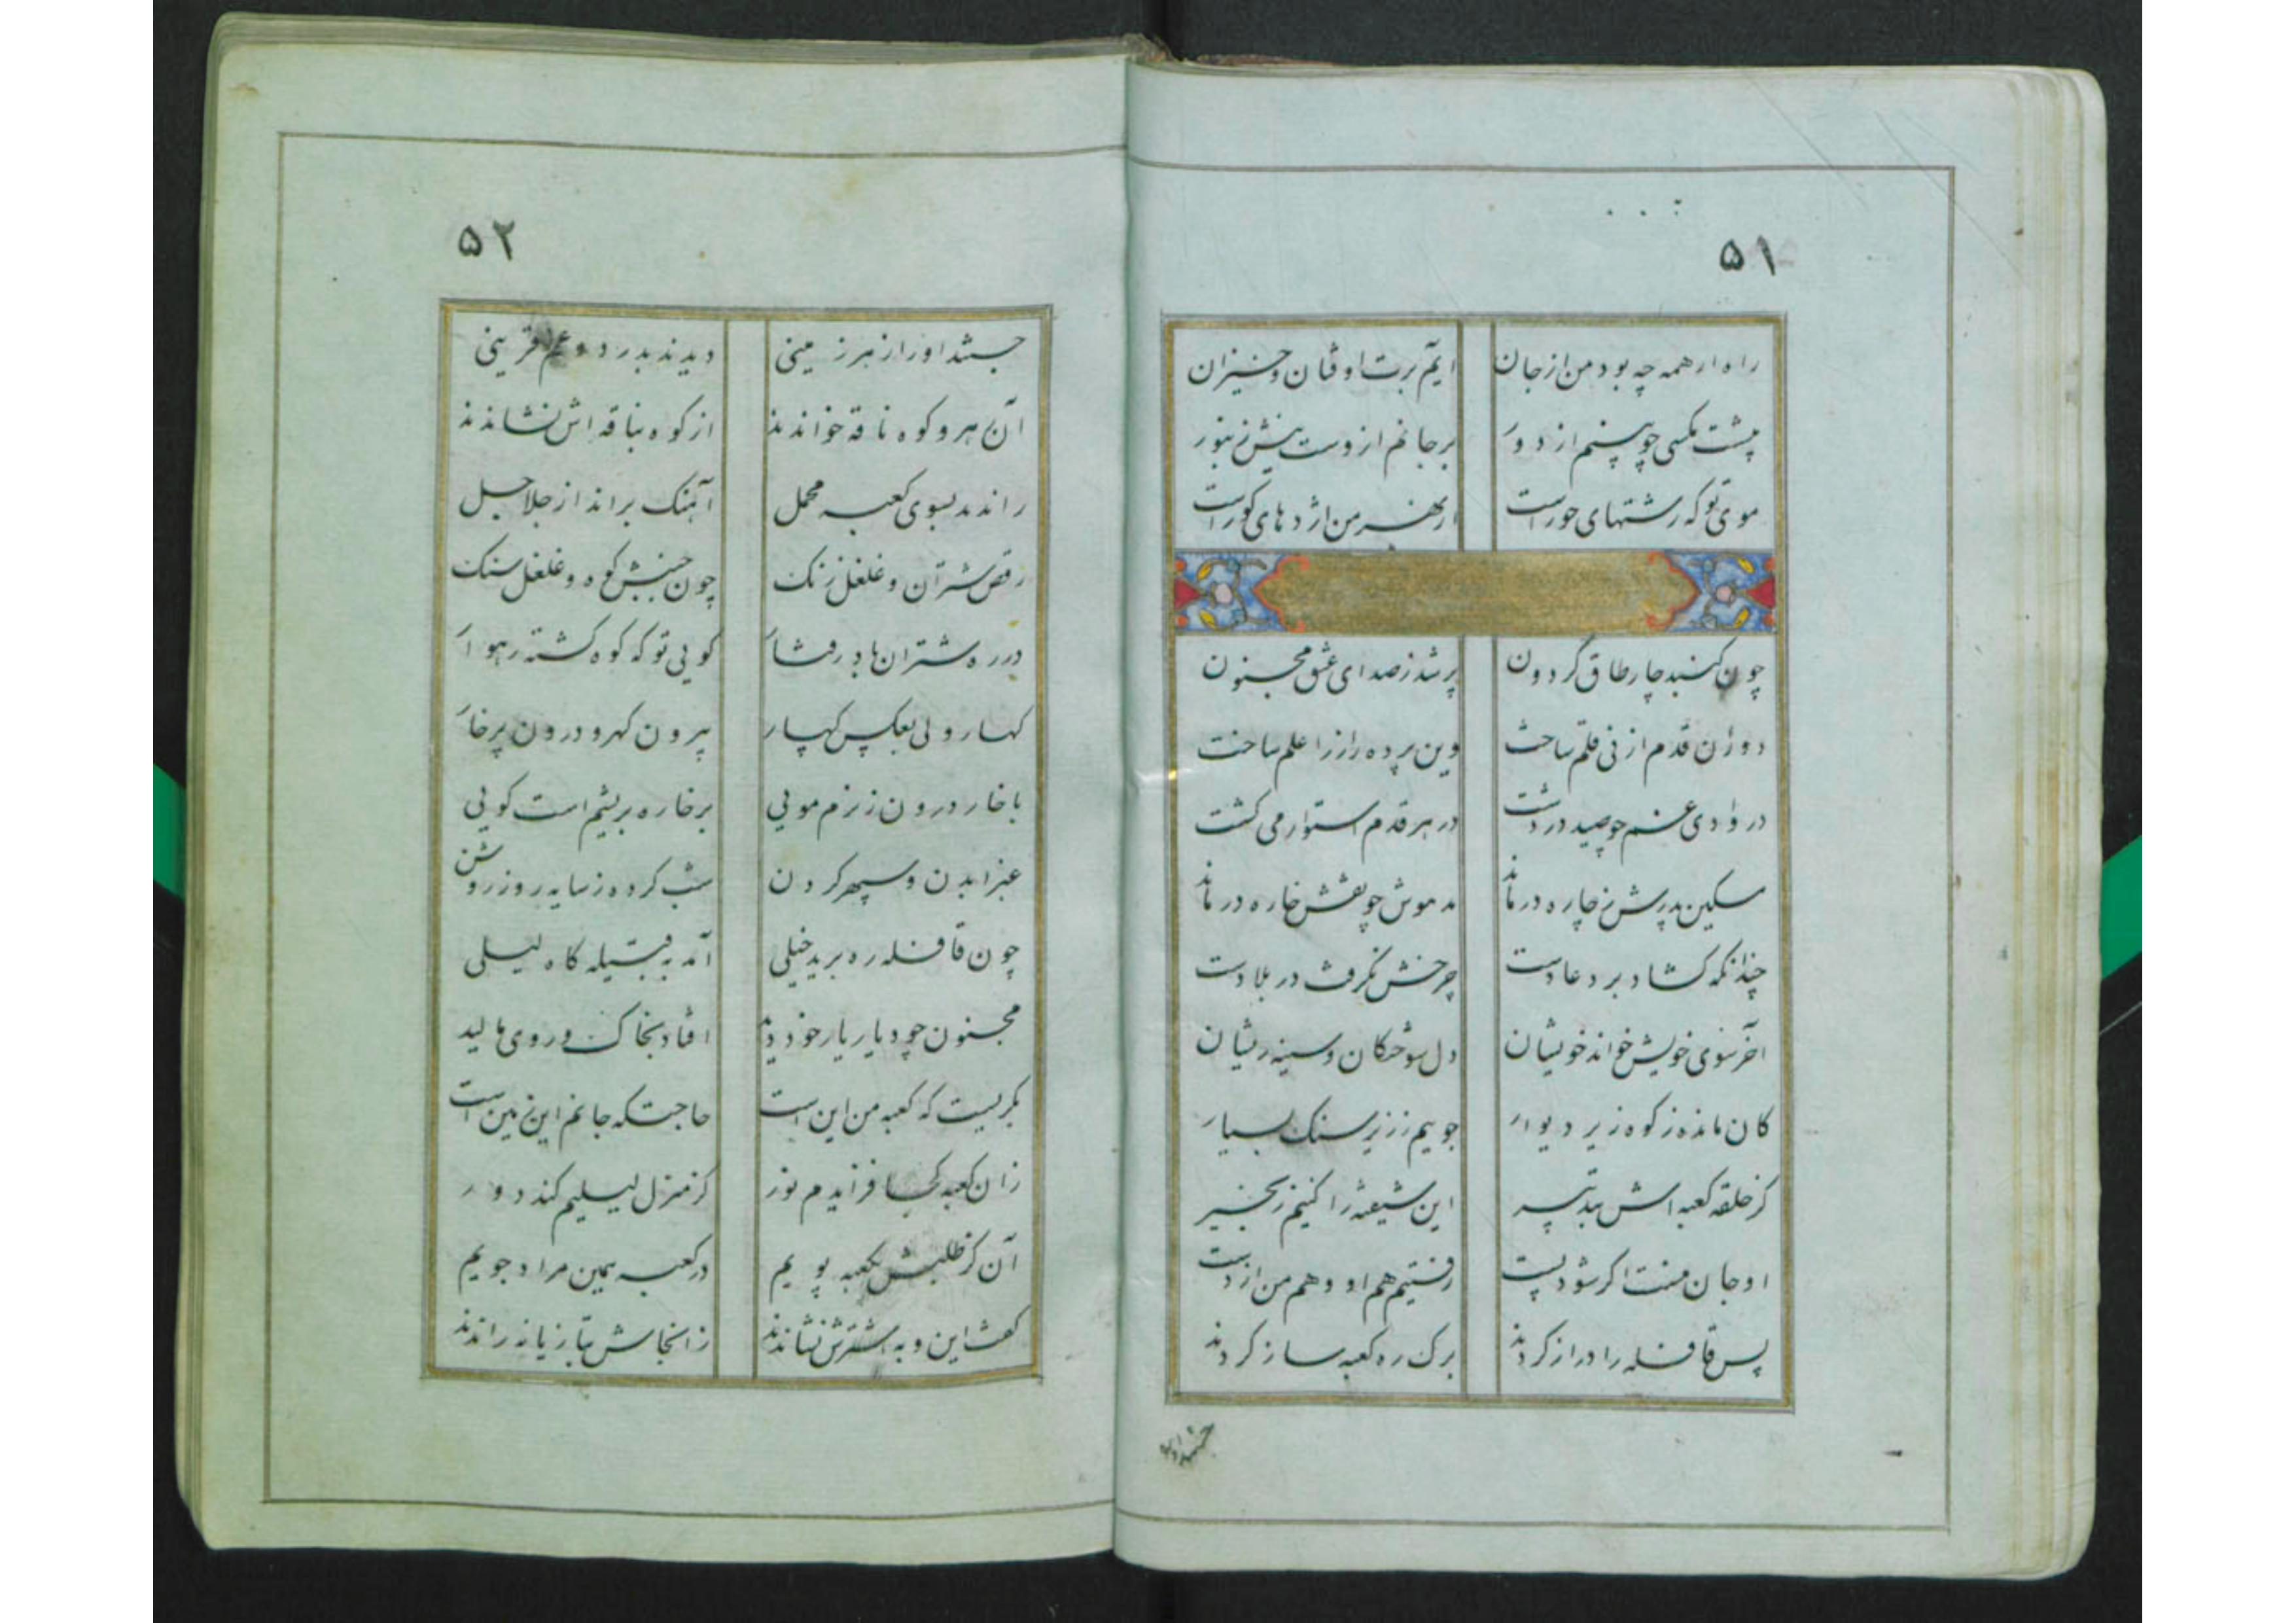 ۵۱
راه ار همه چه بود من از جان
ایم برت اوفتان و خیزان
پشت مکسی چو بینم از دور
بر جانم ازوست نیش زنبور
موی تو که رشتهای حور است
از بهر من اژدهای کور است
چون کنبد چار طاق گردون
پر شد ز صدای عشق مجنون
دوران قدم از نی قلم ساخت
وین پرده راز را علم ساخت
در وادی غم چو صید در دشت
در هر قدم استوار می کشت
مسکین پدرش ز چاره در ماند
مدهوش چو نقش خاره در ماند
چندانکه کشاد بر دعا دست
چرخش نکرفت در بلا دست
آخر سوی خویش خواند خویشان
دل سوختکان و سینه ریشان
کان مانده ز کوه زیر دیوار
جویم ز زیر سنک بسیار
کز حلقه کعبه اش بتدبیر
این شیفته را کنیم زنجیر
او جان منست اکر شود پست
رفتیم هم او و هم من از دست
پس قافله را دراز کردند
برک ره کعبه ساز کردند
جستند او را
۵۲
جستند او را ز هر زمینی
دیدند بدرد و غم قرینی
آن هر و کوه ناقه خواندند
از کوه بناقه اش نشاندند
راندند بسوی کعبه محمل
آهنک براند از جلاجل
رقص شتران و غلغل زنک
چون جنبش کوه و غلغل سنک
در ره شتران باد رفتار
کویی تو که کوه کشته رهوار
کهسار ولی بعکس کهسار
بیرون کهر و درون پر خار
با خار درون ز نرم مویی
بر خاره بریشم است کویی
عنبر ابدن و سپهر کردن
شب کرده ز سایه روز روشن
چون قافله ره برید خیلی
آمد به قبیله کاه لیلی
مجنون چو دیار یار خود دید
افتاد بخاک و روی مالید
بکریست که کعبه من این است
حاجتکه جانم این زمین است
زان کعبه کجا فزایدم نور
کز منزل لیلیم کند دور
آن کز طلبش بکعبه پویم
در کعبه همین مراد جویم
کفت این و به اشترش نشاندند
زانجاش بتازیانه راندند